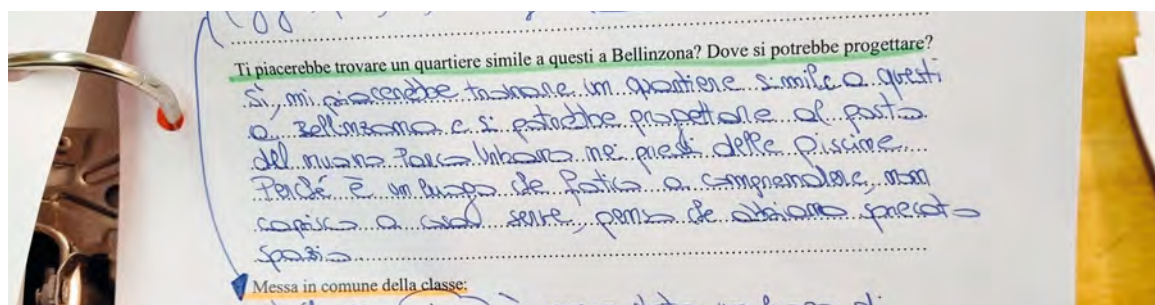 Ti piacerebbe trovare un quartiere simile a questi a Bellinzona? Dove si potrebbe progettare?
Sì, mi piacerebbe trovare un quartiere simile a questi
a Bellinzona e si potrebbe progettare al posto
del nuovo Parco Urbano nei pressi delle Piscine.
Perché è un luogo che fatico a comprendere, non
capisco a cosa serve, penso che abbiamo sprecato
spazio
Messa in comune della classe: